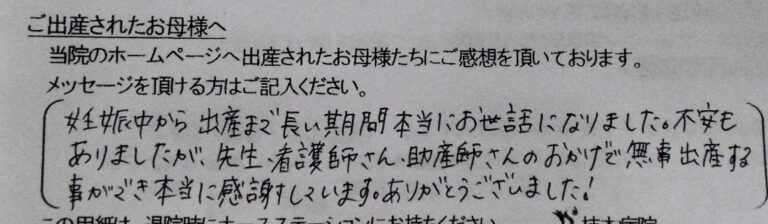 ご出産されたお母様へ
当院のホームページへ出産されたお母様たちにご感想を頂いております。
メッセージを頂ける方はご記入ください。
妊娠中から出産まで長い期間本当にお世話になりました。不安も
ありましたが、先生、看護師さん、助産師さんのおかげで無事出産する
事ができ本当に感謝しています。ありがとうございました!
この用紙は、退院時にナースステーションにお持ちください